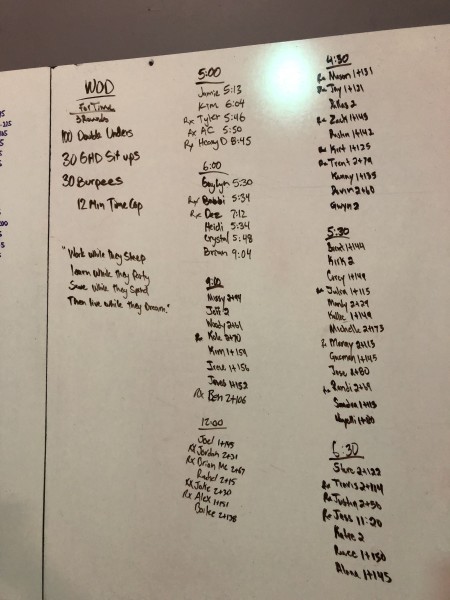 WOD
For Time
3 Rounds
100 Double Unders
30 GHD Sit ups
30 Burpees
12 Min Time Cap
"Work while they sleep
Learn while they party
Save while they spend
Then live while they Dream."
5:00
Jamie 5:13
Kim 6:04
Rx Tyler 5:46
Rx AC 5:50
Rx Henry D 8:45
6:00
5:30
Rx Bobbi 5:34
Rx Dez 7:12
Heidi 5:34
Crystal 5:48
Brian 9:04
9:00
Missy
Jeff 2
Woody 2+61
Rx Kole 2+70
Kim 1+159
Irene 1+156
1+152
Rx Ben 2+106
12:00
Joel 1+145
Rx Jordan 2+31
Rx Brian Mc 2+67
Rachel 2+15
Rx Jake 2+30
Rx Alex 1+151
Bailee 2+128
4:30
Rx Mason 1+131
Rx Jay 1+121
2
Rx Zack 1+143
1+142
Rx Kirt 1+125
Rx Trent 2+79
Kenny 1+135
Devin 2+60
Gwyn 2
5:30
Brent 1+144
Kirk 2
Corey 1+149
Rx Julia 1+115
Mandy 2+29
Kallie 1+149
Michelle 2+73
Manny 2+113
Guzman 1+145
Jose 2+80
Rx Randi 2+69
Sandra 1+113
1+80
6:30
Steve 2+122
Rx Travis 2+114
Rx Justin 2+56
Rx Jess 11:20
Katie 2
1+150
Alona 1+145